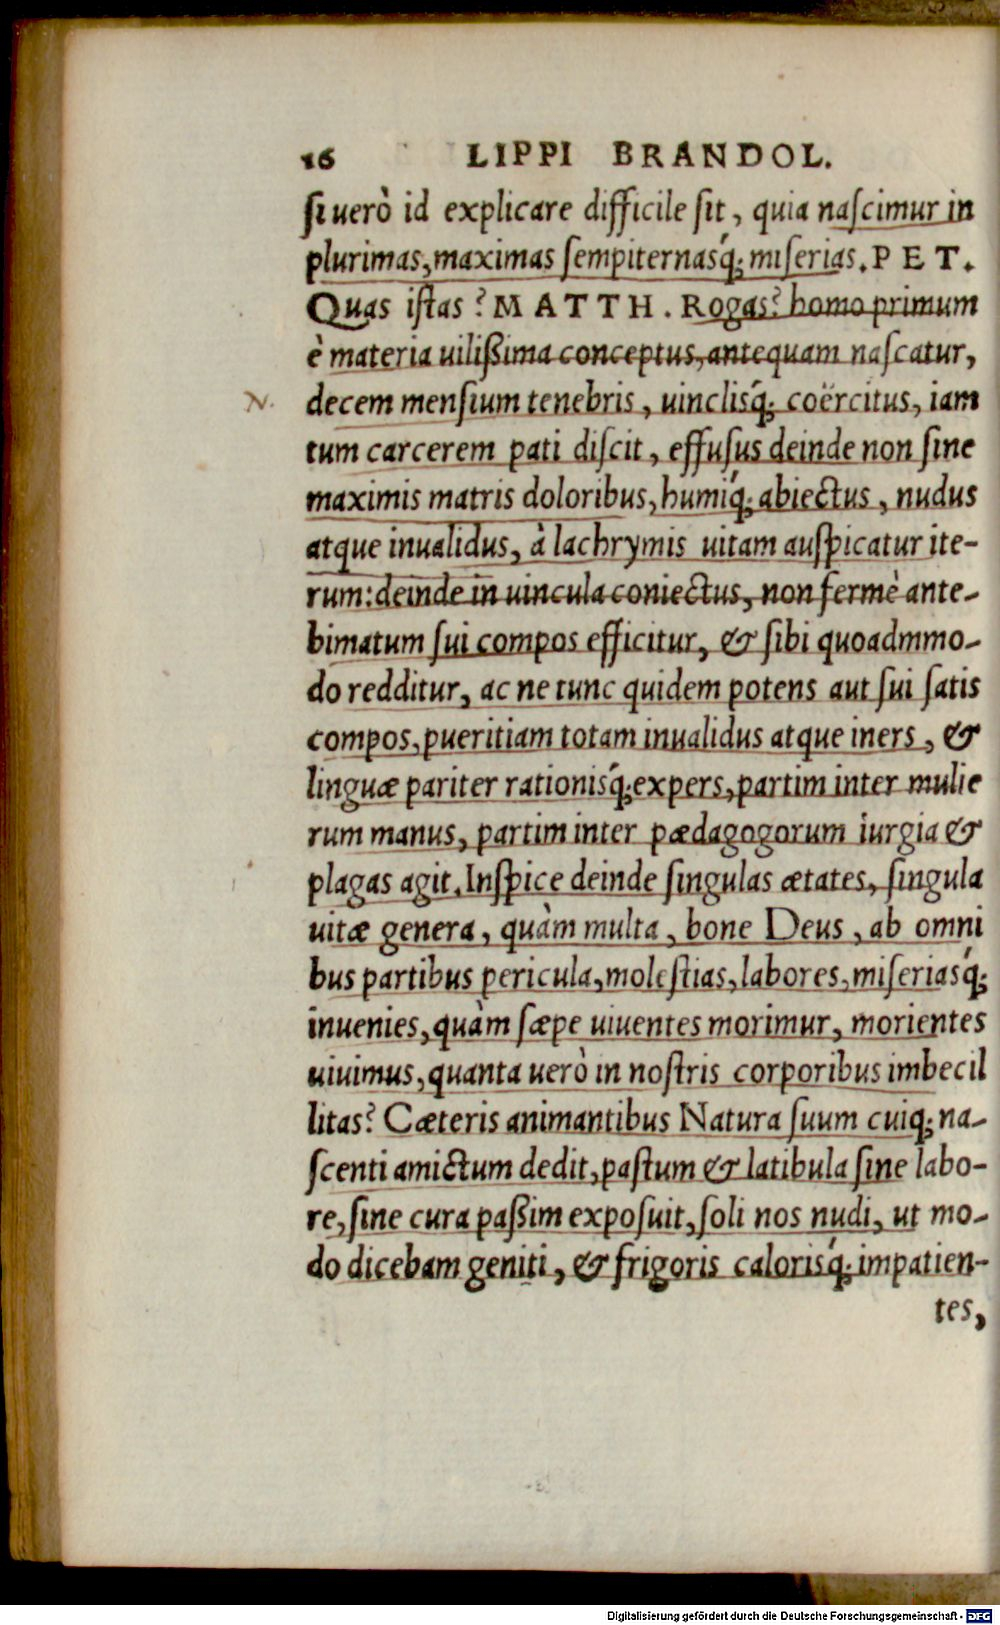 16 LIPPI BRANDOL.
si uerò id explicare difficile sit, quia nascimur in
plurimas, maximas sempiternasq́; miserias. PET.
Quas istas? MATTH. Rogas? homo primum
è materia uilißima conceptus, antequam nascatur,
N. decem mensium tenebris, uinclisq́; coërcitus, iam
tum carcerem pati discit, effusus deinde non sine
maximis matris doloribus, humiq́; abiectus, nudus
atque inualidus, à lachrymis uitam auspicatur ite-
rum: deinde in uincula coniectus, non fermè ante-
bimatum sui compos efficitur, & sibi quoadmmo-
do redditur, ac ne tunc quidem potens aut sui satis
compos, pueritiam totam inualidus atque iners, &
linguæ pariter rationisq́; expers, partim inter mulie
rum manus, partim inter pædagogorum iurgia &
plagas agit. Inspice deinde singulas ætates, singula
uitæ genera, quàm multa, bone Deus, ab omni
bus partibus pericula, molestias, labores, miseriasq́;
inuenies, quàm sæpe uiuentes morimur, morientes
uiuimus, quanta uerò in nostris corporibus imbecil
litas? Cæteris animantibus Natura suum cuiq; na-
scenti amictum dedit, pastum & latibula sine labo-
re, sine cura paßim exposuit, soli nos nudi, ut mo-
do dicebam geniti, & frigoris calorisq́; impatien-
tes,
Digitalisierung gefördert durch die Deutsche Forschungsgemeinschaft - DFG